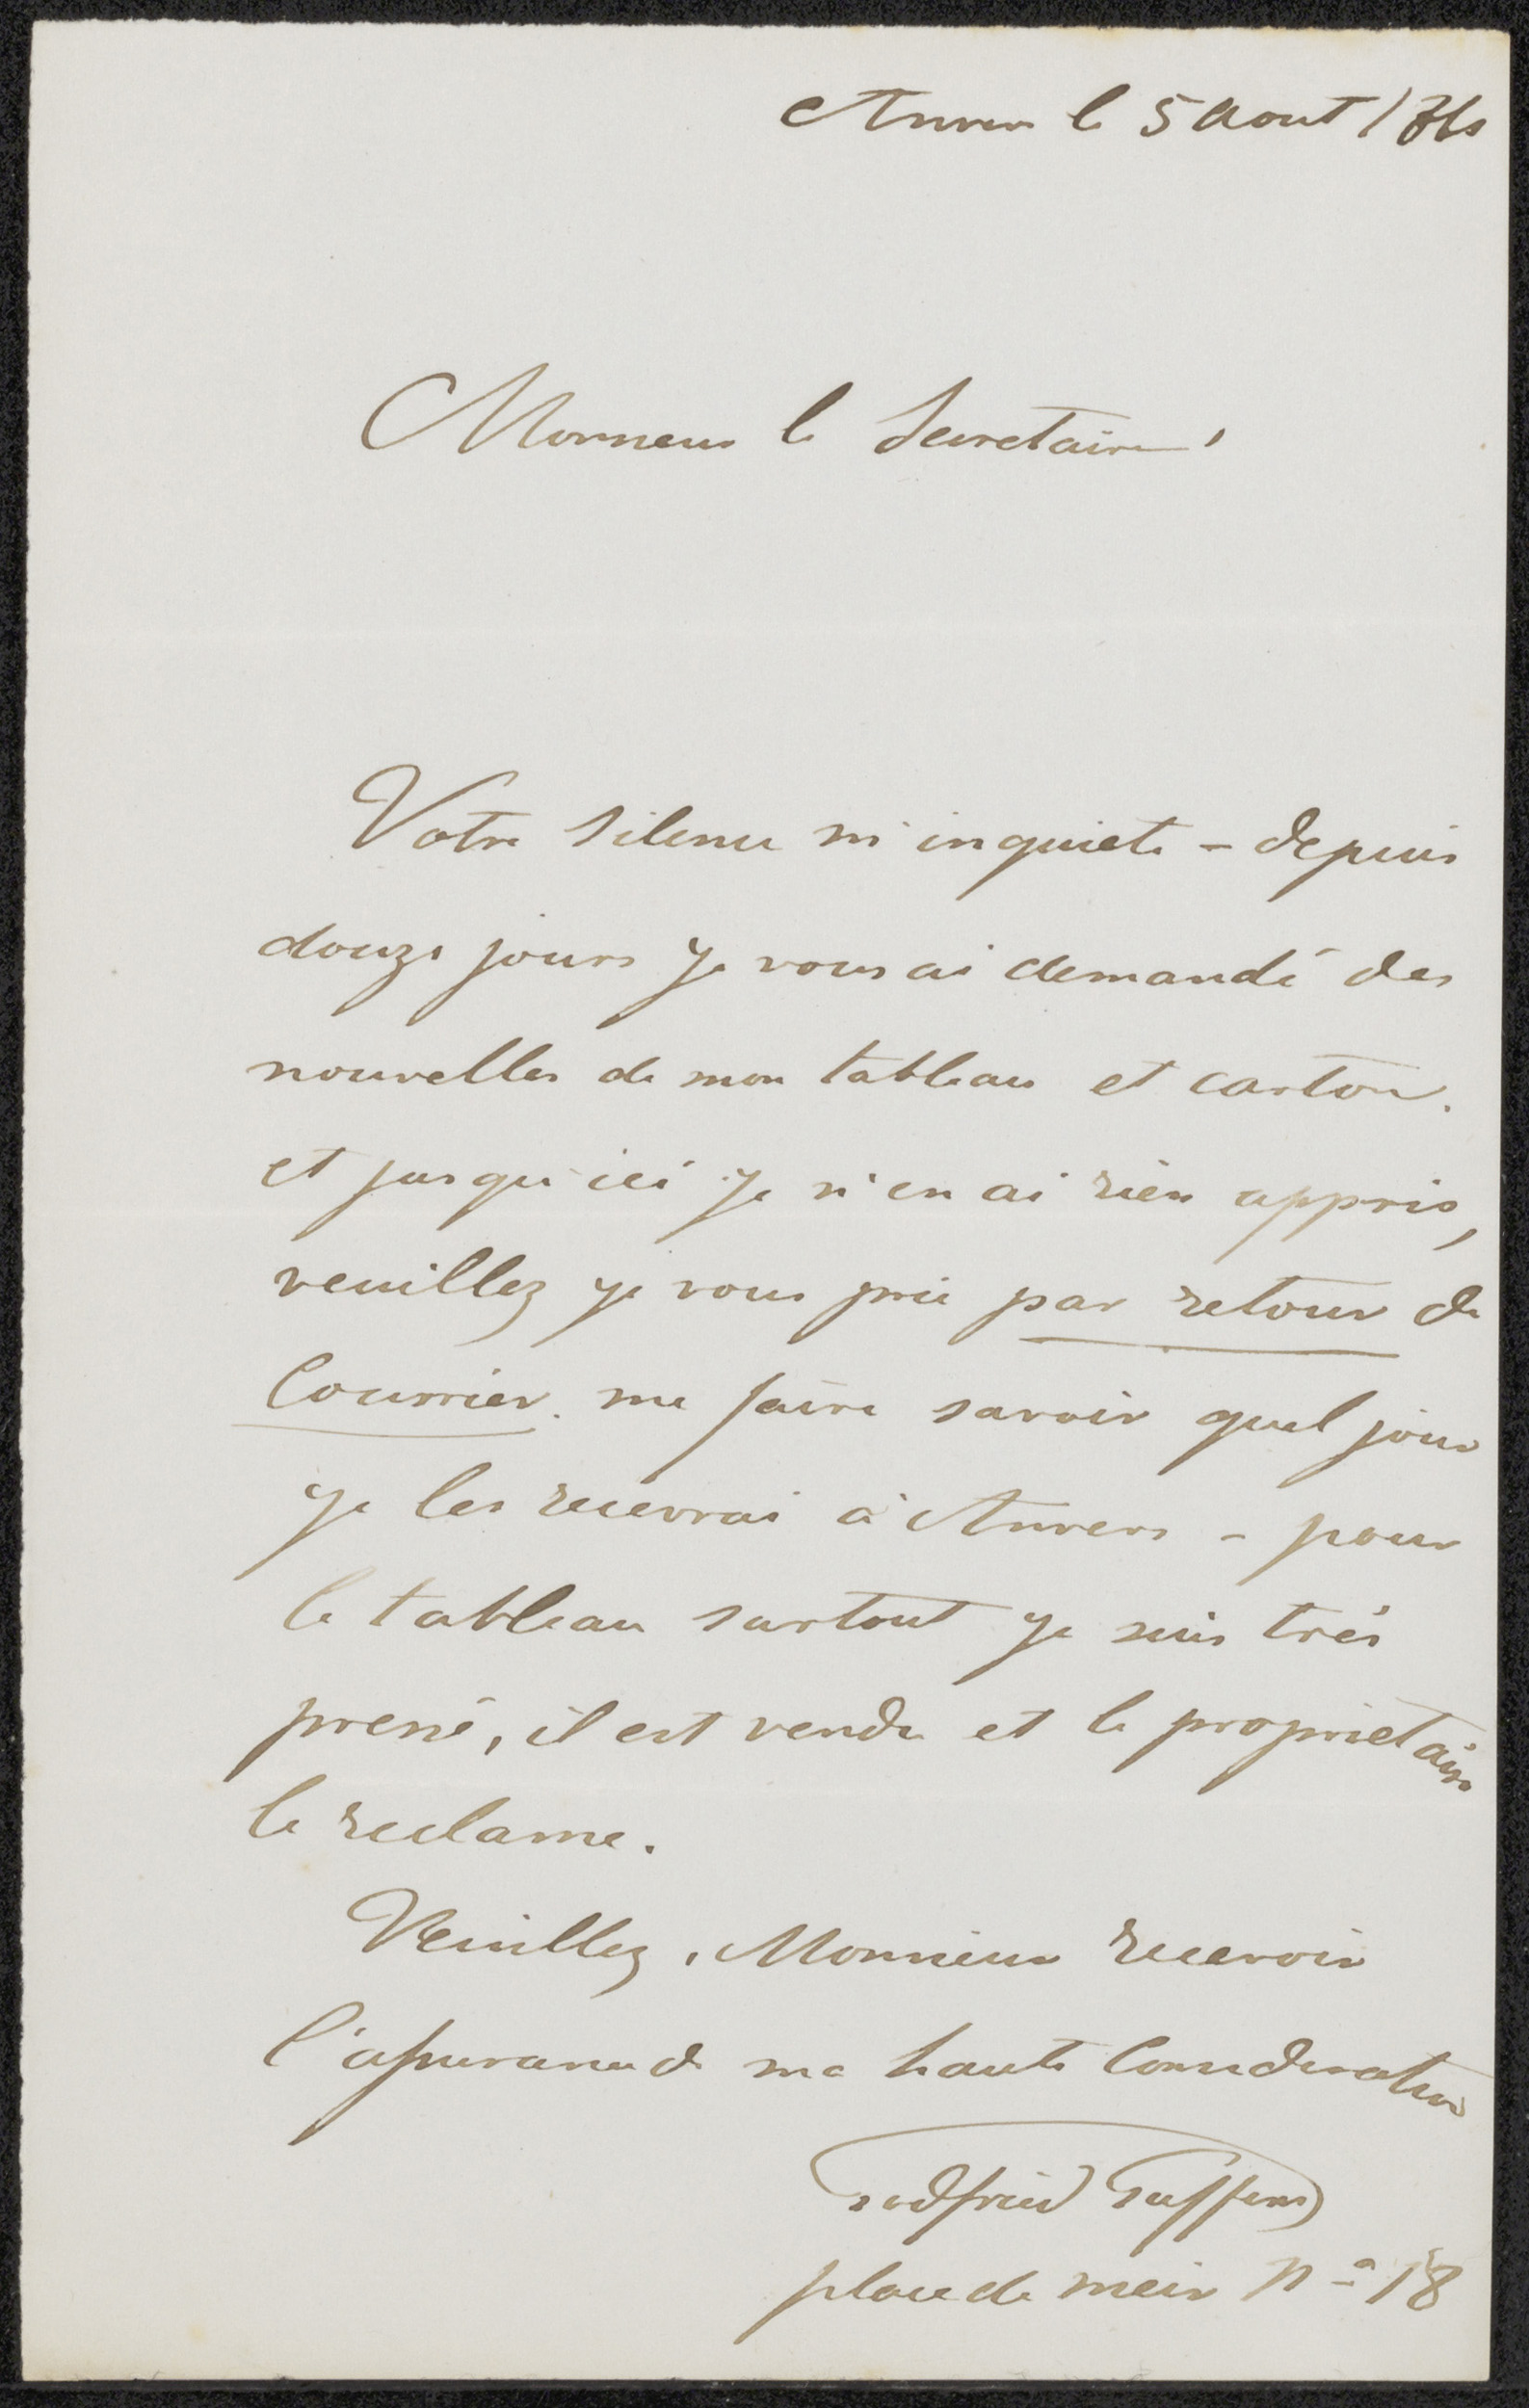 Anvers le 5 Aout
Monsieur le Secretaire,
Votre silence m'inquiete - depuis
douze jours je vous ai demandé des
nouvelles de mon tableau et carton.
et jusqu'ici je n'en ai rien appris,
veuillez je vous prie par retour de
Courrier. me faire savoir quel jour
je les recevrai à Anvers - pour
le tableau surtout je suis très
pressé, il est vendu et le proprietaire
le reclame.
Veuillez, Monsieur recevoir
l'assurance de ma haute Consideration
Godfried Guffens
place de meir No 18